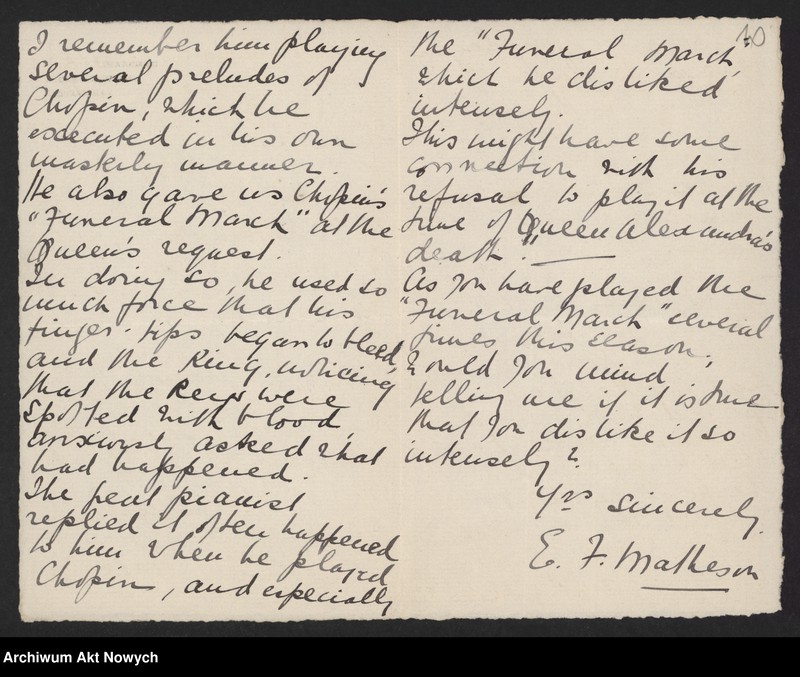 I remember him playing
several preludes of
Chopin, which he
executed in his own
masterly manner.
He also gave us Chopin's
"Funeral March" at the
Queen's request.
In doing so, he used so
much force that his
finger-tips began to bleed,
and the King, noticing
that the keys were
spotted with blood,
anxiously asked what
had happened.
The great pianist
replied it often happened
to him when he played
Chopin, and especially
40
the "Funeral March"
which he disliked
intensely.
This might have some
connection with his
refusal to play it at the
time of Queen Alexandra's
death."
As you have played the
"Funeral March" several
times this season,
would you mind
telling me if it is true
that you dislike it so
intensely?
Yrs sincerely.
E. F. Matheson
Archiwum Akt Nowych